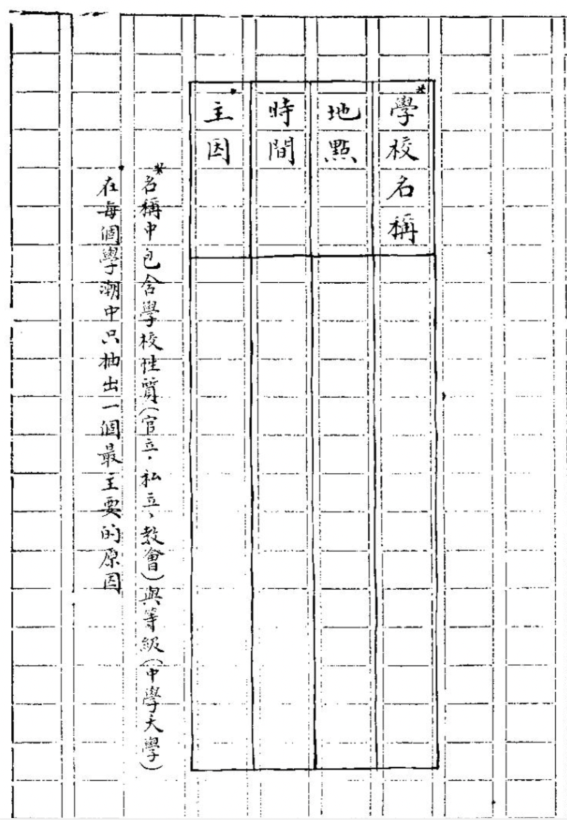 *學校名稱
地點
時間
·主因
*名稱中包含學校性質(官立、私立、教會)與等級(中學大學)
·在每個學潮中只抽出一個最主要的原因